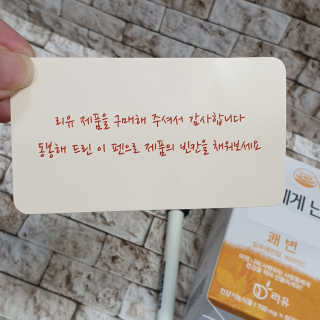 리유 제품을 구매해 주셔서 감사합니다
동봉해 드린 이 펜으로 제품의 빈칸을 채워보세요
에게 난
쾌변
리유